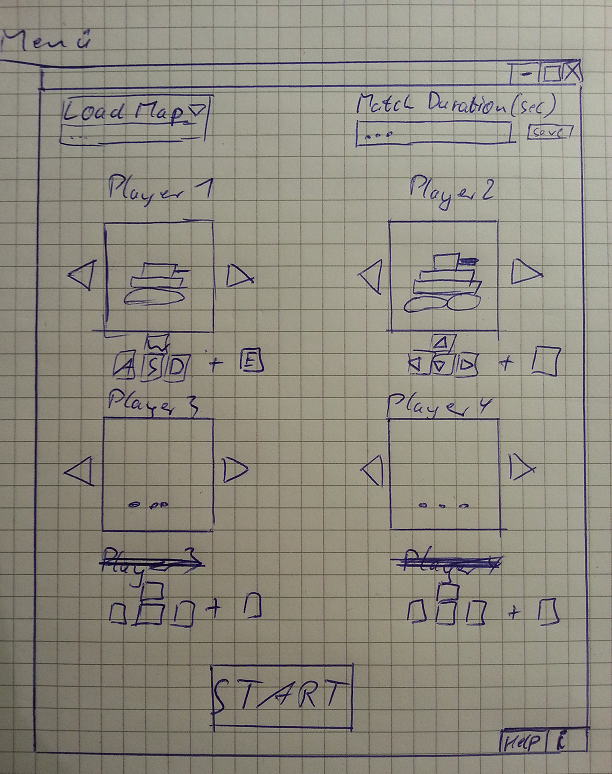 Menü
- □ X
Load Map ▽
...
Match Duration (sec)
... save
Player 1
Player 2
W
A S D + E
+
Player 3
Player 4
...
...
Player 3
Player 4
+
+
START
Help i